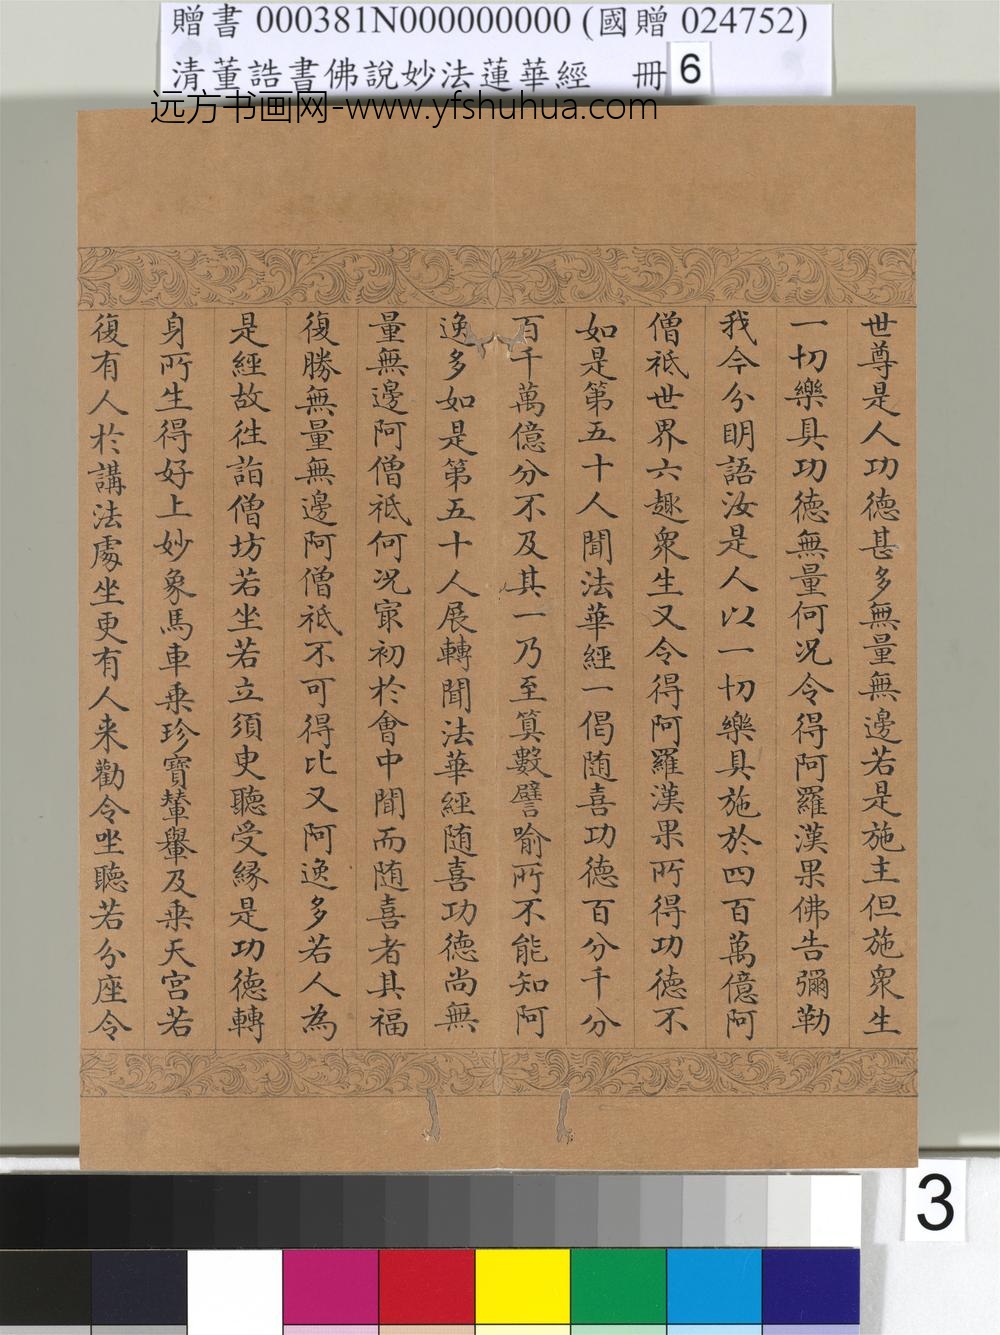 贈書 000381N000000000 (國贈 024752)
清董誥書佛說妙法蓮華經 冊 6
远方书画网-www.yfshuhua.com
世尊是人功德甚多無量無邊若是施主但施衆生
一切樂具功德無量何况令得阿羅漢果佛告彌勒
我今分明語汝是人以一切樂具施於四百萬億阿
僧祇世界六趣衆生又令得阿羅漢果所得功德不
如是第五十人聞法華經一偈随喜功德百分千分
百千萬億分不及其一乃至筭數譬喻所不能知阿
逸多如是第五十人展轉聞法華經随喜功德尚無
量無邊阿僧祇何况冣初於會中聞而随喜者其福
復勝無量無邊阿僧祇不可得比又阿逸多若人為
是經故徃詣僧坊若坐若立須臾聽受縁是功德轉
身所生得好上妙象馬車乗珍寶輦轝及乗天宮若
復有人於講法處坐更有人来勸令坐聽若分座令
3